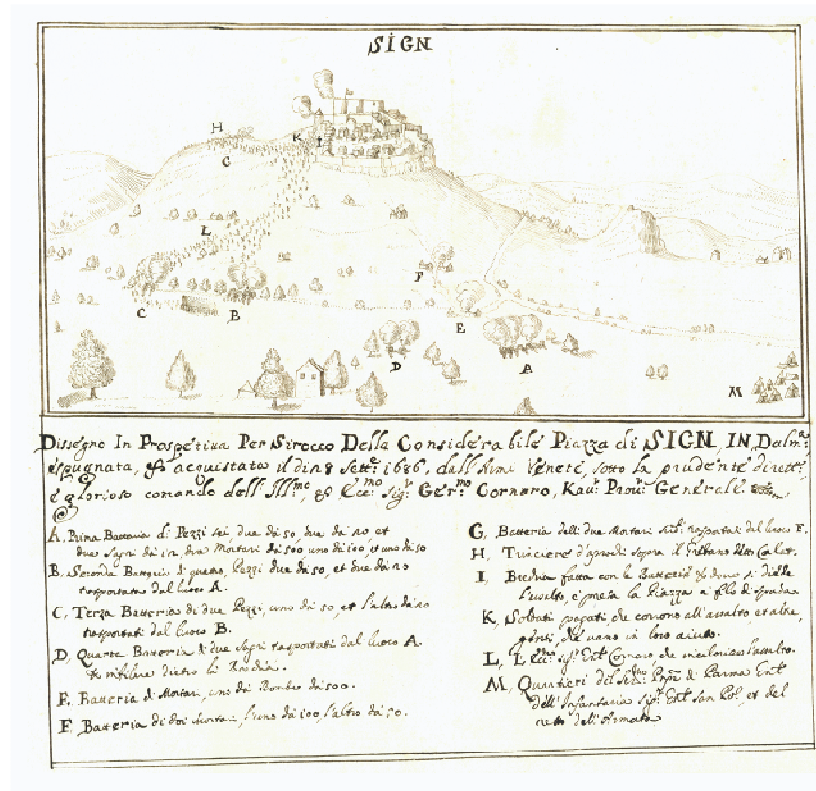 SIGN
H
G
K
I
L
F
C
B
E
D
A
M
Dissegno In Prospetiva Per Sirocco Della Considerabile Piazza di SIGN, IN Dalm:ª
espugnata, et acquistata il di 28 Sett:e 1686. dall'Armi Venete, sotto la prudente dirett:e
è glorioso comando dell'Ill:mo, & Ecc:mo Sig:r Ger:mo Cornaro, Kau:r Prou:r Generall:e
A, Prima Batteria di Pezzi sei, due da 50, due da 20 et
due Sagri da 12, due Mortari da 500 uno di 100, et uno di 50
B. Seconda Batteria di quattro Pezzi due da 50, et due da 20
trasportata dal luoco A.
C, Terza Batteria di due Pezzi, uno da 50, et l'altro da 20
trasportati dal luoco B.
D, Quarta Batteria di due Sagri trasportati dal luoco A
E. Batteria di Mortari, uno da Bombe da 500.
F. Batteria di doi Mortari, l'uno da 100, l'altro da 50.
G, Batteria delli due Mortari trasportati dal luoco F.
H, Trinciere
I, Breccia fatta con le Batterie & dove si diede
l'assalto, è presa la Piazza a filo di spada
K, Soldati pagati che corrono all'assalto, et altri
in loro aiuto.
L, L'Ecc:mo Sig:r Cornaro che l'assalto.
M, Quartieri del Ser:mo di Parma
dell'Infantaria Sig:r San Pol, et del
resto dell'Armata